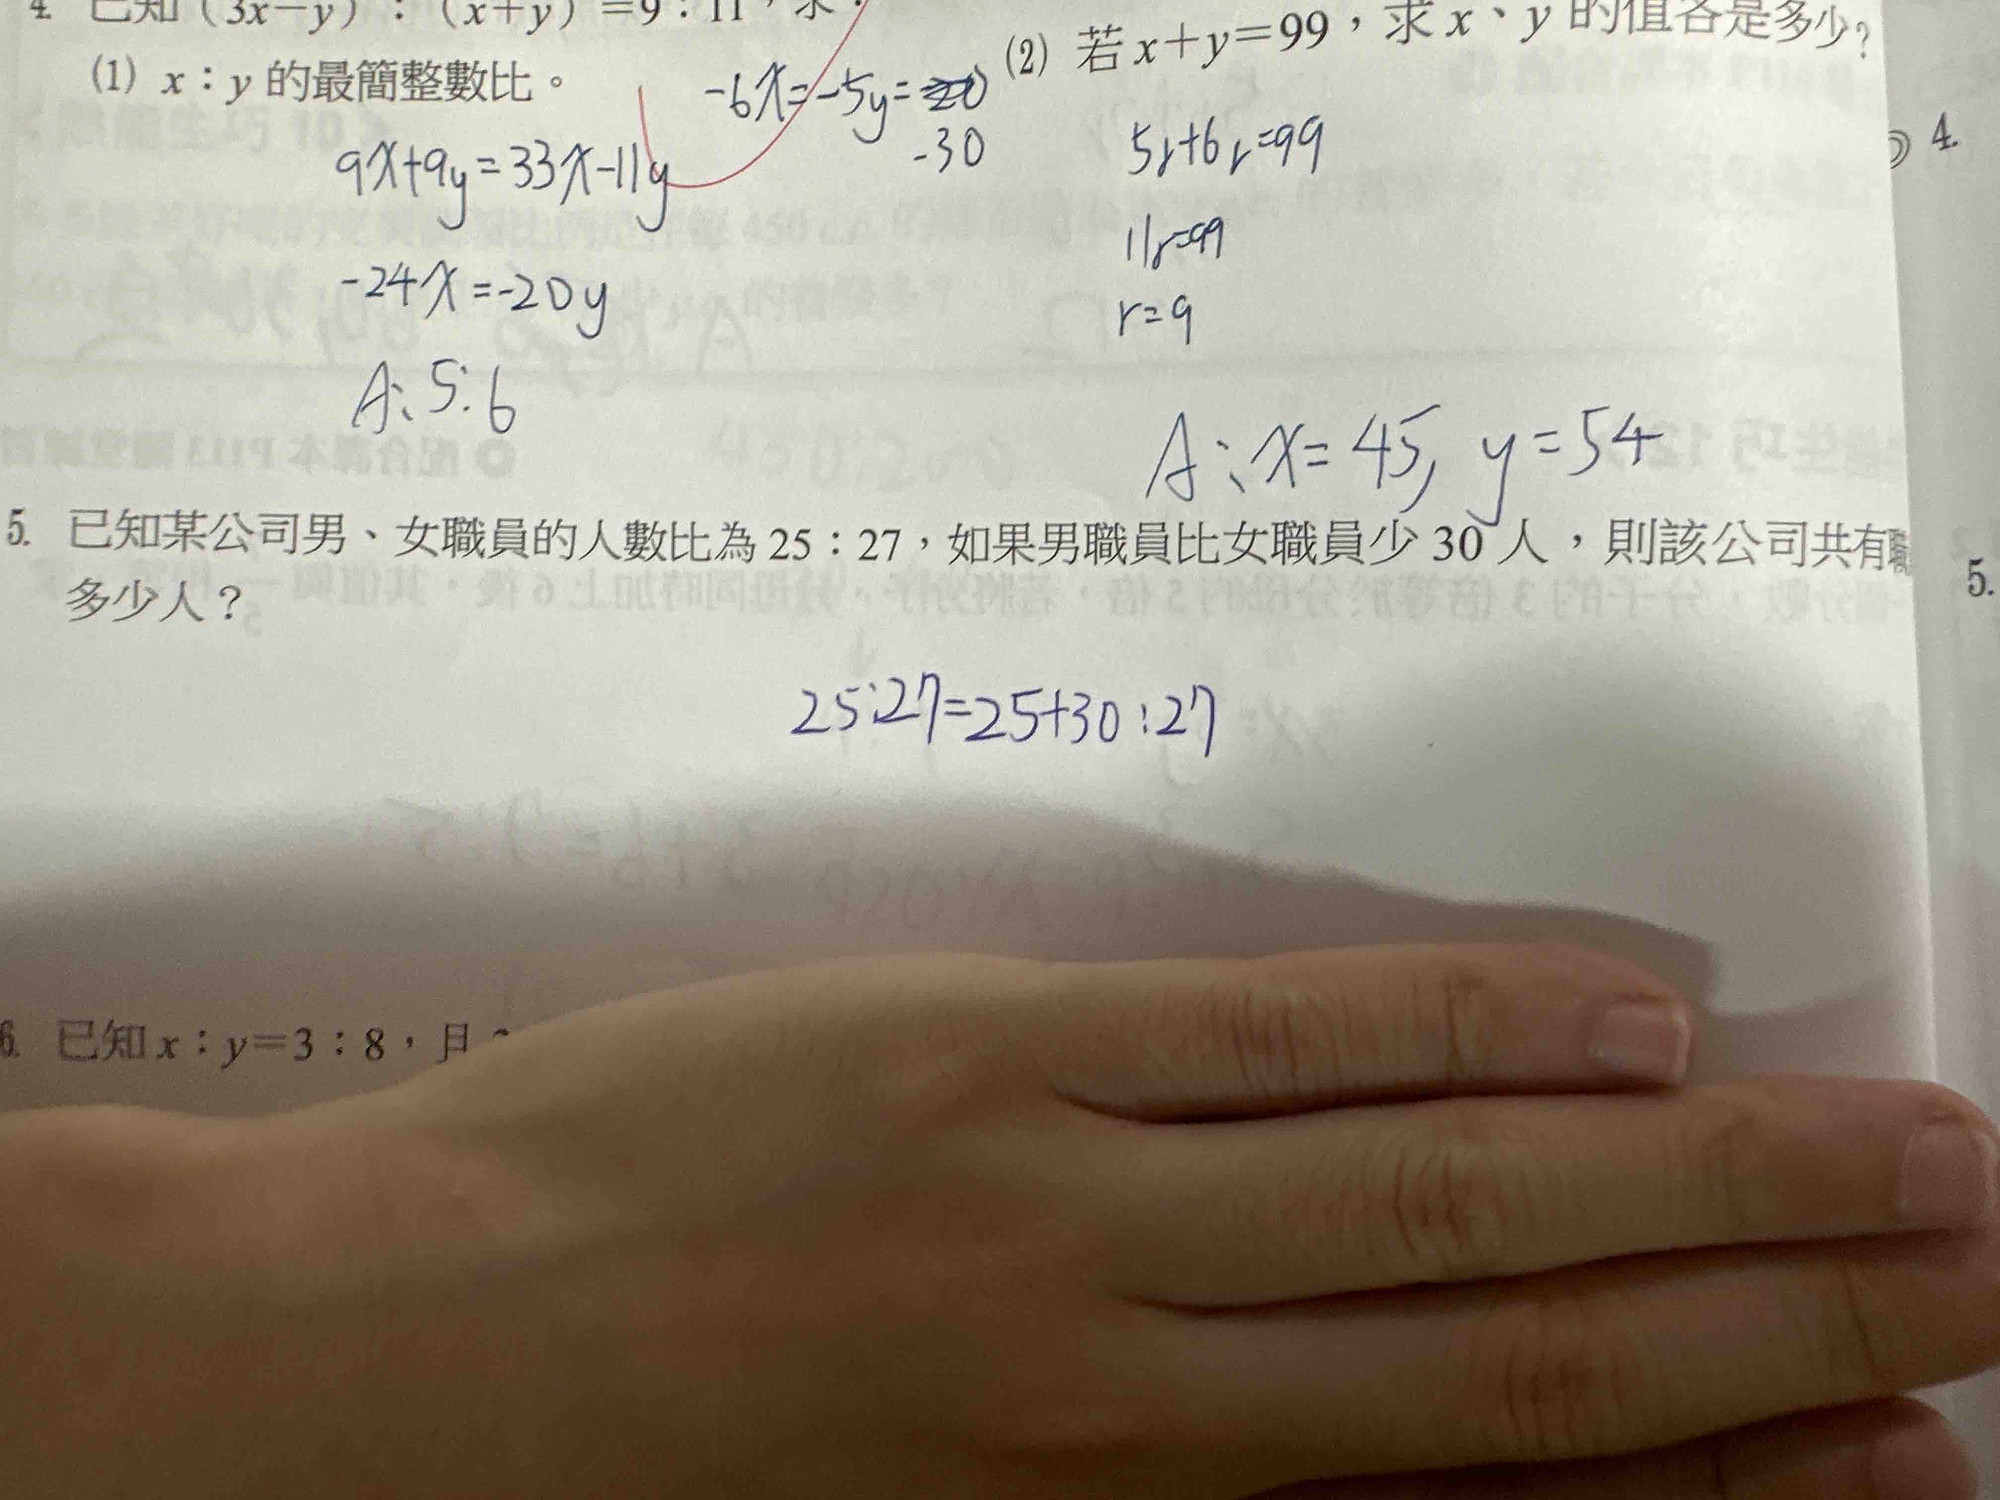 4. 已知（3x－y）：（x＋y）＝9：11，求：
(1) x：y 的最簡整數比。
-6x=-5y=
-30
9x+9y=33x-11y
-24x=-20y
A:5:6
(2) 若 x＋y＝99，求 x、y 的值各是多少？
5r+6r=99
11r=99
r=9
A:x=45, y=54
4.
5. 已知某公司男、女職員的人數比為 25：27，如果男職員比女職員少 30 人，則該公司共有職
多少人？
25:27=25+30:27
5.
6. 已知 x：y＝3：8，且